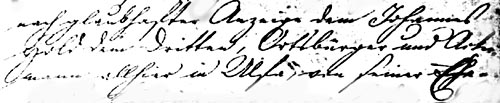 nach glaubhafter Anzeige dem Johannes
Gold dem Dritten, Ortsbürger und Acker
mann allhier in Ulfa, von seiner Ehe-